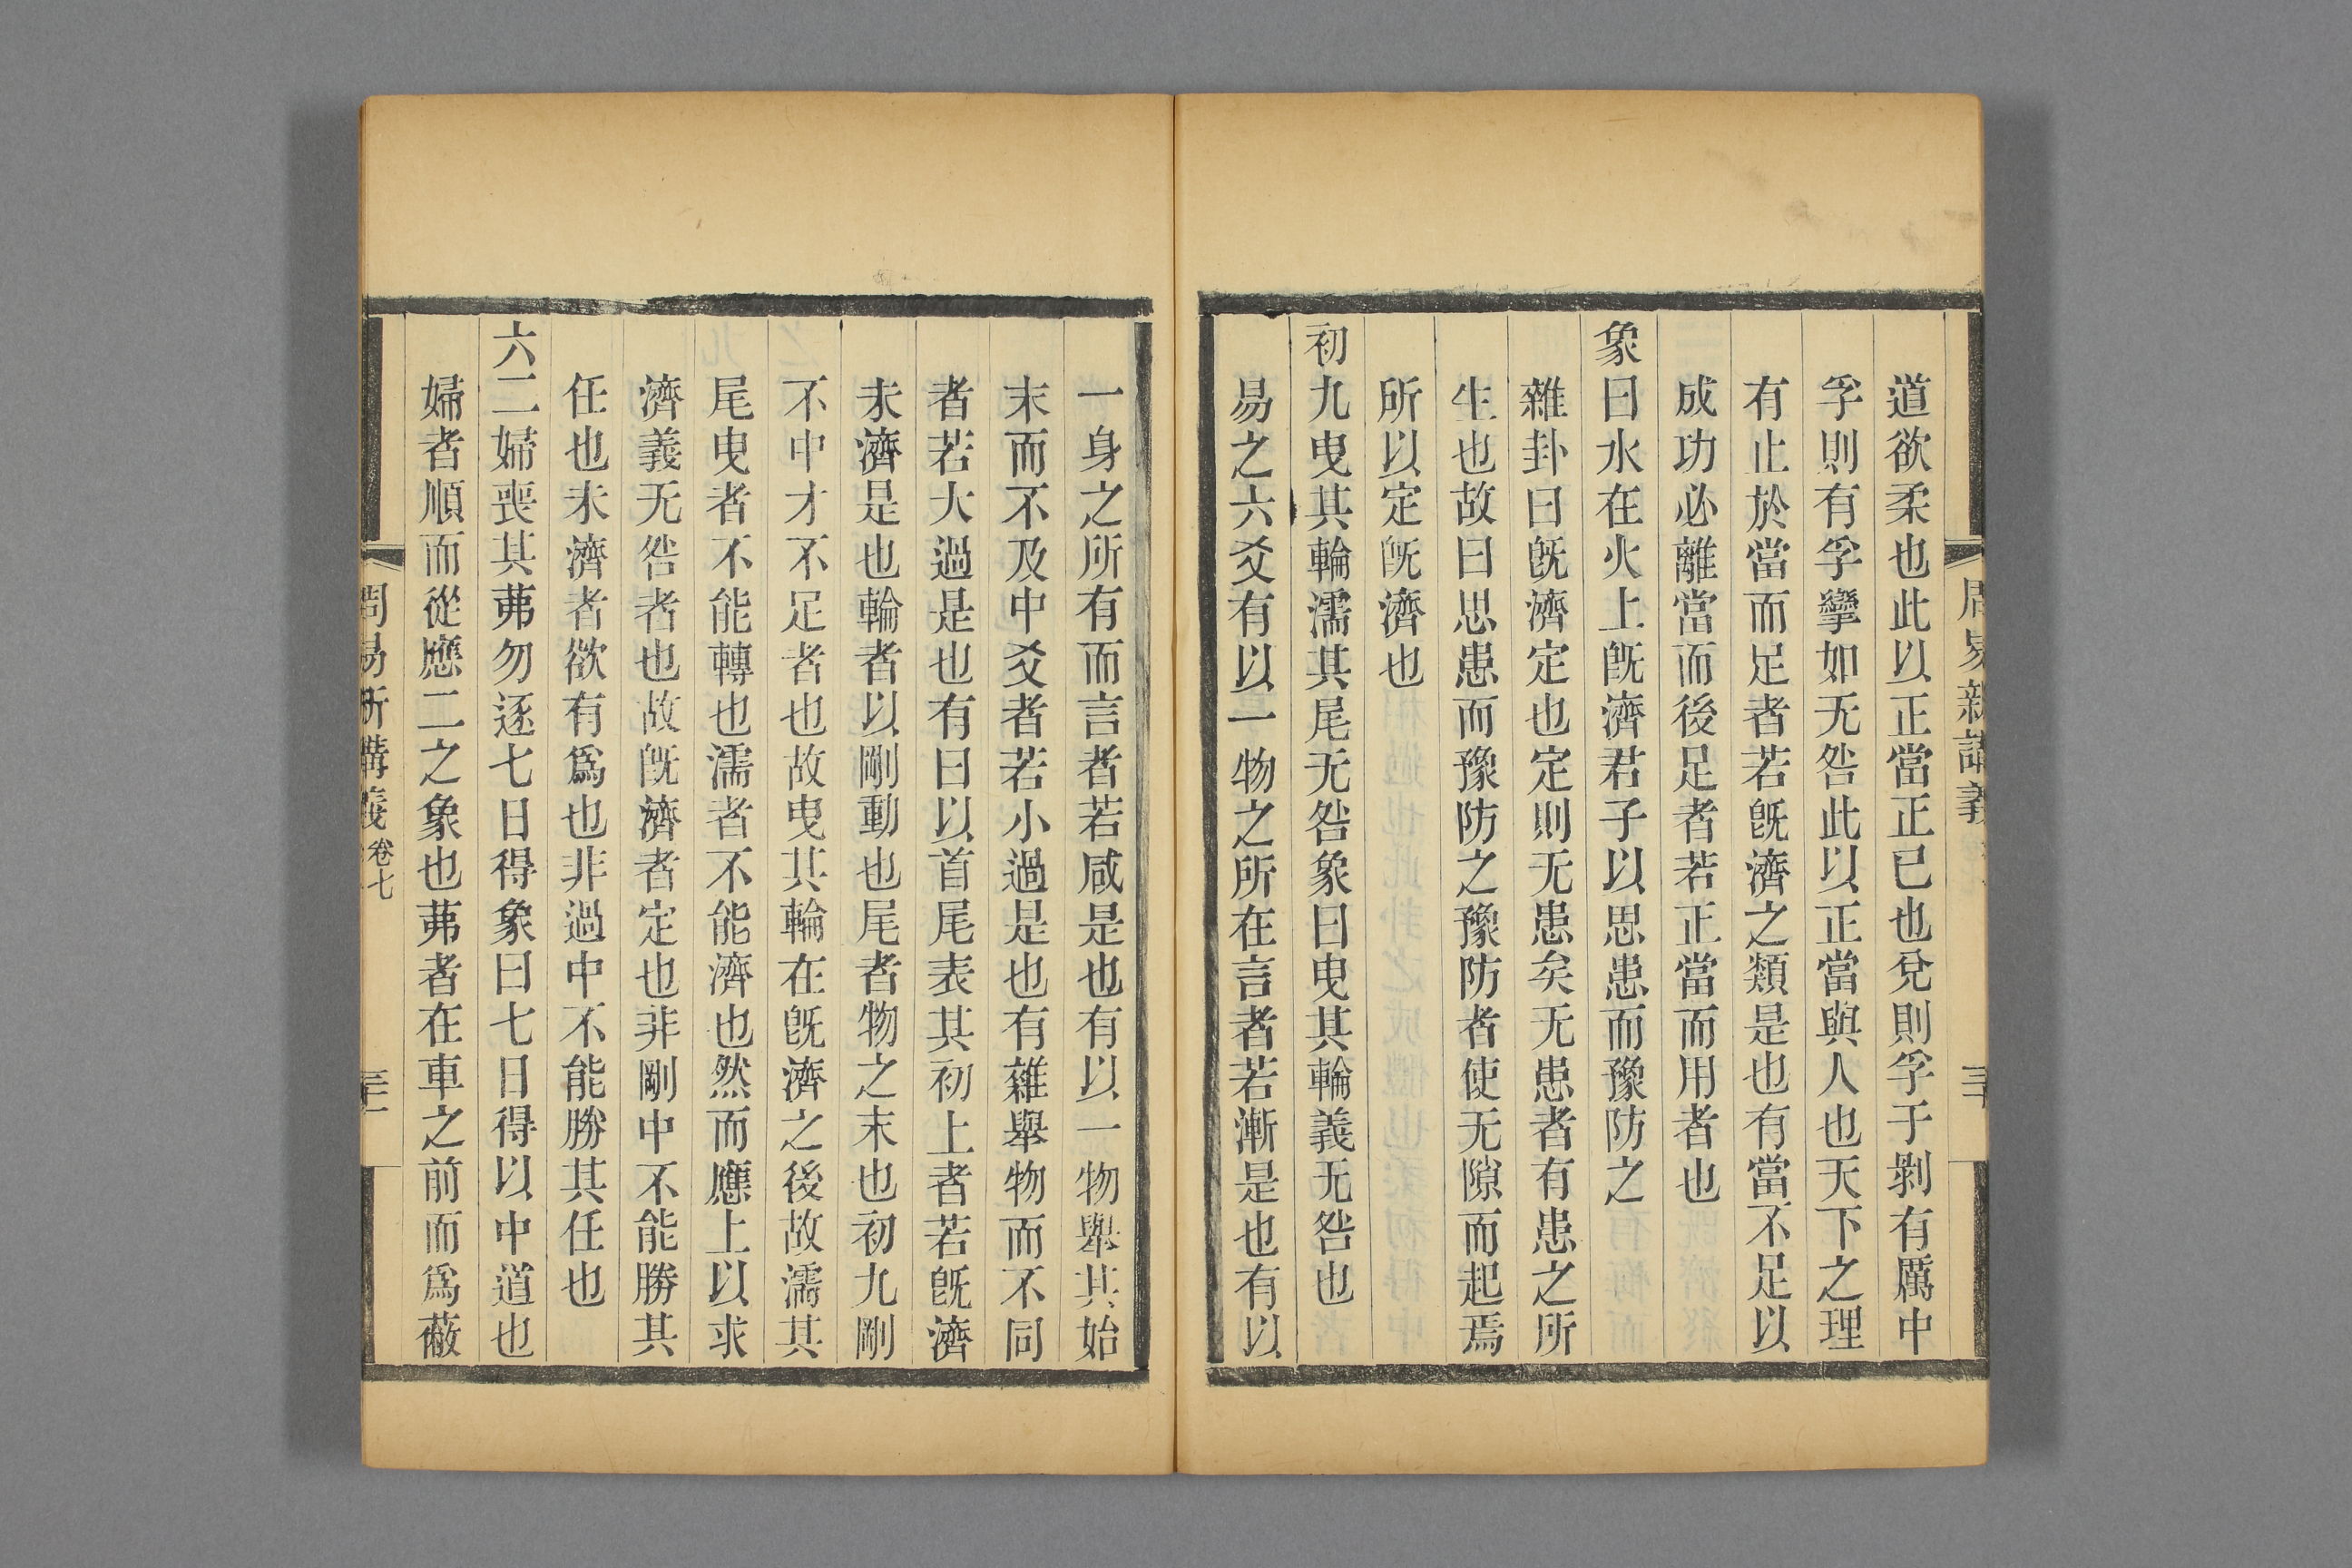 周易新講義
三十
道欲柔也此以正當正已也兌則孚于剝有厲中
孚則有孚攣如无咎此以正當與人也天下之理
有止於當而足者若旣濟之類是也有當不足以
成功必離當而後足者若正當而用者也
象曰水在火上旣濟君子以思患而豫防之
雜卦曰旣濟定也定則无患矣无患者有患之所
生也故曰思患而豫防之豫防者使无隙而起焉
所以定旣濟也
初九曳其輪濡其尾无咎象曰曳其輪義无咎也
易之六爻有以一物之所在言者若漸是也有以
一身之所有而言者若咸是也有以一物舉其始
末而不及中爻者若小過是也有雜舉物而不同
者若大過是也有曰以首尾表其初上者若旣濟
未濟是也輪者以剛動也尾者物之末也初九剛
不中才不足者也故曳其輪在旣濟之後故濡其
尾曳者不能轉也濡者不能濟也然而應上以求
濟義无咎者也故旣濟者定也非剛中不能勝其
任也未濟者欲有爲也非過中不能勝其任也
六二婦喪其茀勿逐七日得象曰七日得以中道也
婦者順而從應二之象也茀者在車之前而爲蔽
周易新講義 卷七
三十一